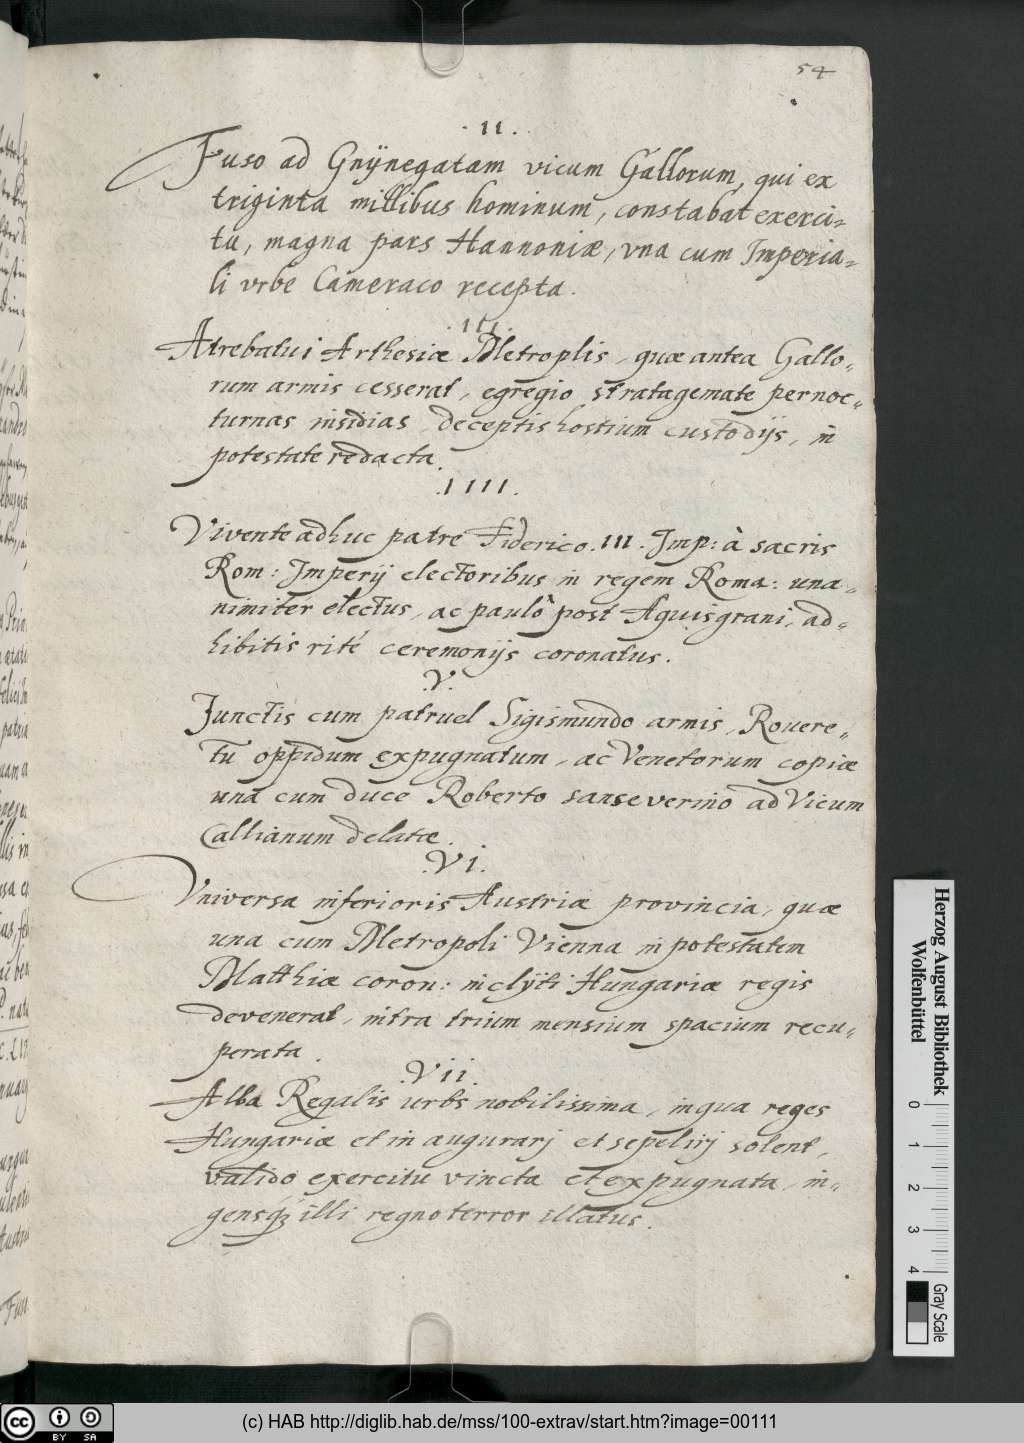 54
.II.
Fuso ad Gnÿnegatam vicum Gallorum, qui ex
triginta millibus hominum, constabat exerci=
tu, magna pars Hannoniæ, vna cum Imperia=
li vrbe Cameraco recepta.
.III.
Atrebatui Arthesiæ Metroplis, quæ antea Gallo=
rum armis cesserat, egregio stratagemate per noc=
turnas insidias, deceptis hostium custodijs, in
potestate redacta.
.IIII.
Vivente adhuc patre Fiderico .III. Imp: à sacris
Rom: Imperij electoribus in regem Roma: una=
nimiter electus, ac paulò post Aquisgrani, ad=
hibitis rité ceremonijs coronatus.
.V.
Junctis cum patruel Sigismundo armis, Rouere=
tu oppidum expugnatum, ac Venetorum copiæ
una cum duce Roberto sanseverino ad Vicum
Callianum deletæ.
.VI.
Vniversa inferioris Austriæ provincia, quæ
una cum Metropoli Vienna in potestatem
Matthiæ coron: inclÿti Hungariæ regis
devenerat, intra trium mensium spacium recu=
perata.
.VII.
Alba Regalis urbs nobilissima, in qua reges
Hungariæ et in augurarj et sepelirj solent,
valido exercitu vincta et expugnata, in=
gensq́ illi regno terror illatus.
Herzog August Bibliothek
Wolfenbüttel
0 1 2 3 4
Gray Scale
cc BY SA
(c) HAB http://diglib.hab.de/mss/100-extrav/start.htm?image=00111